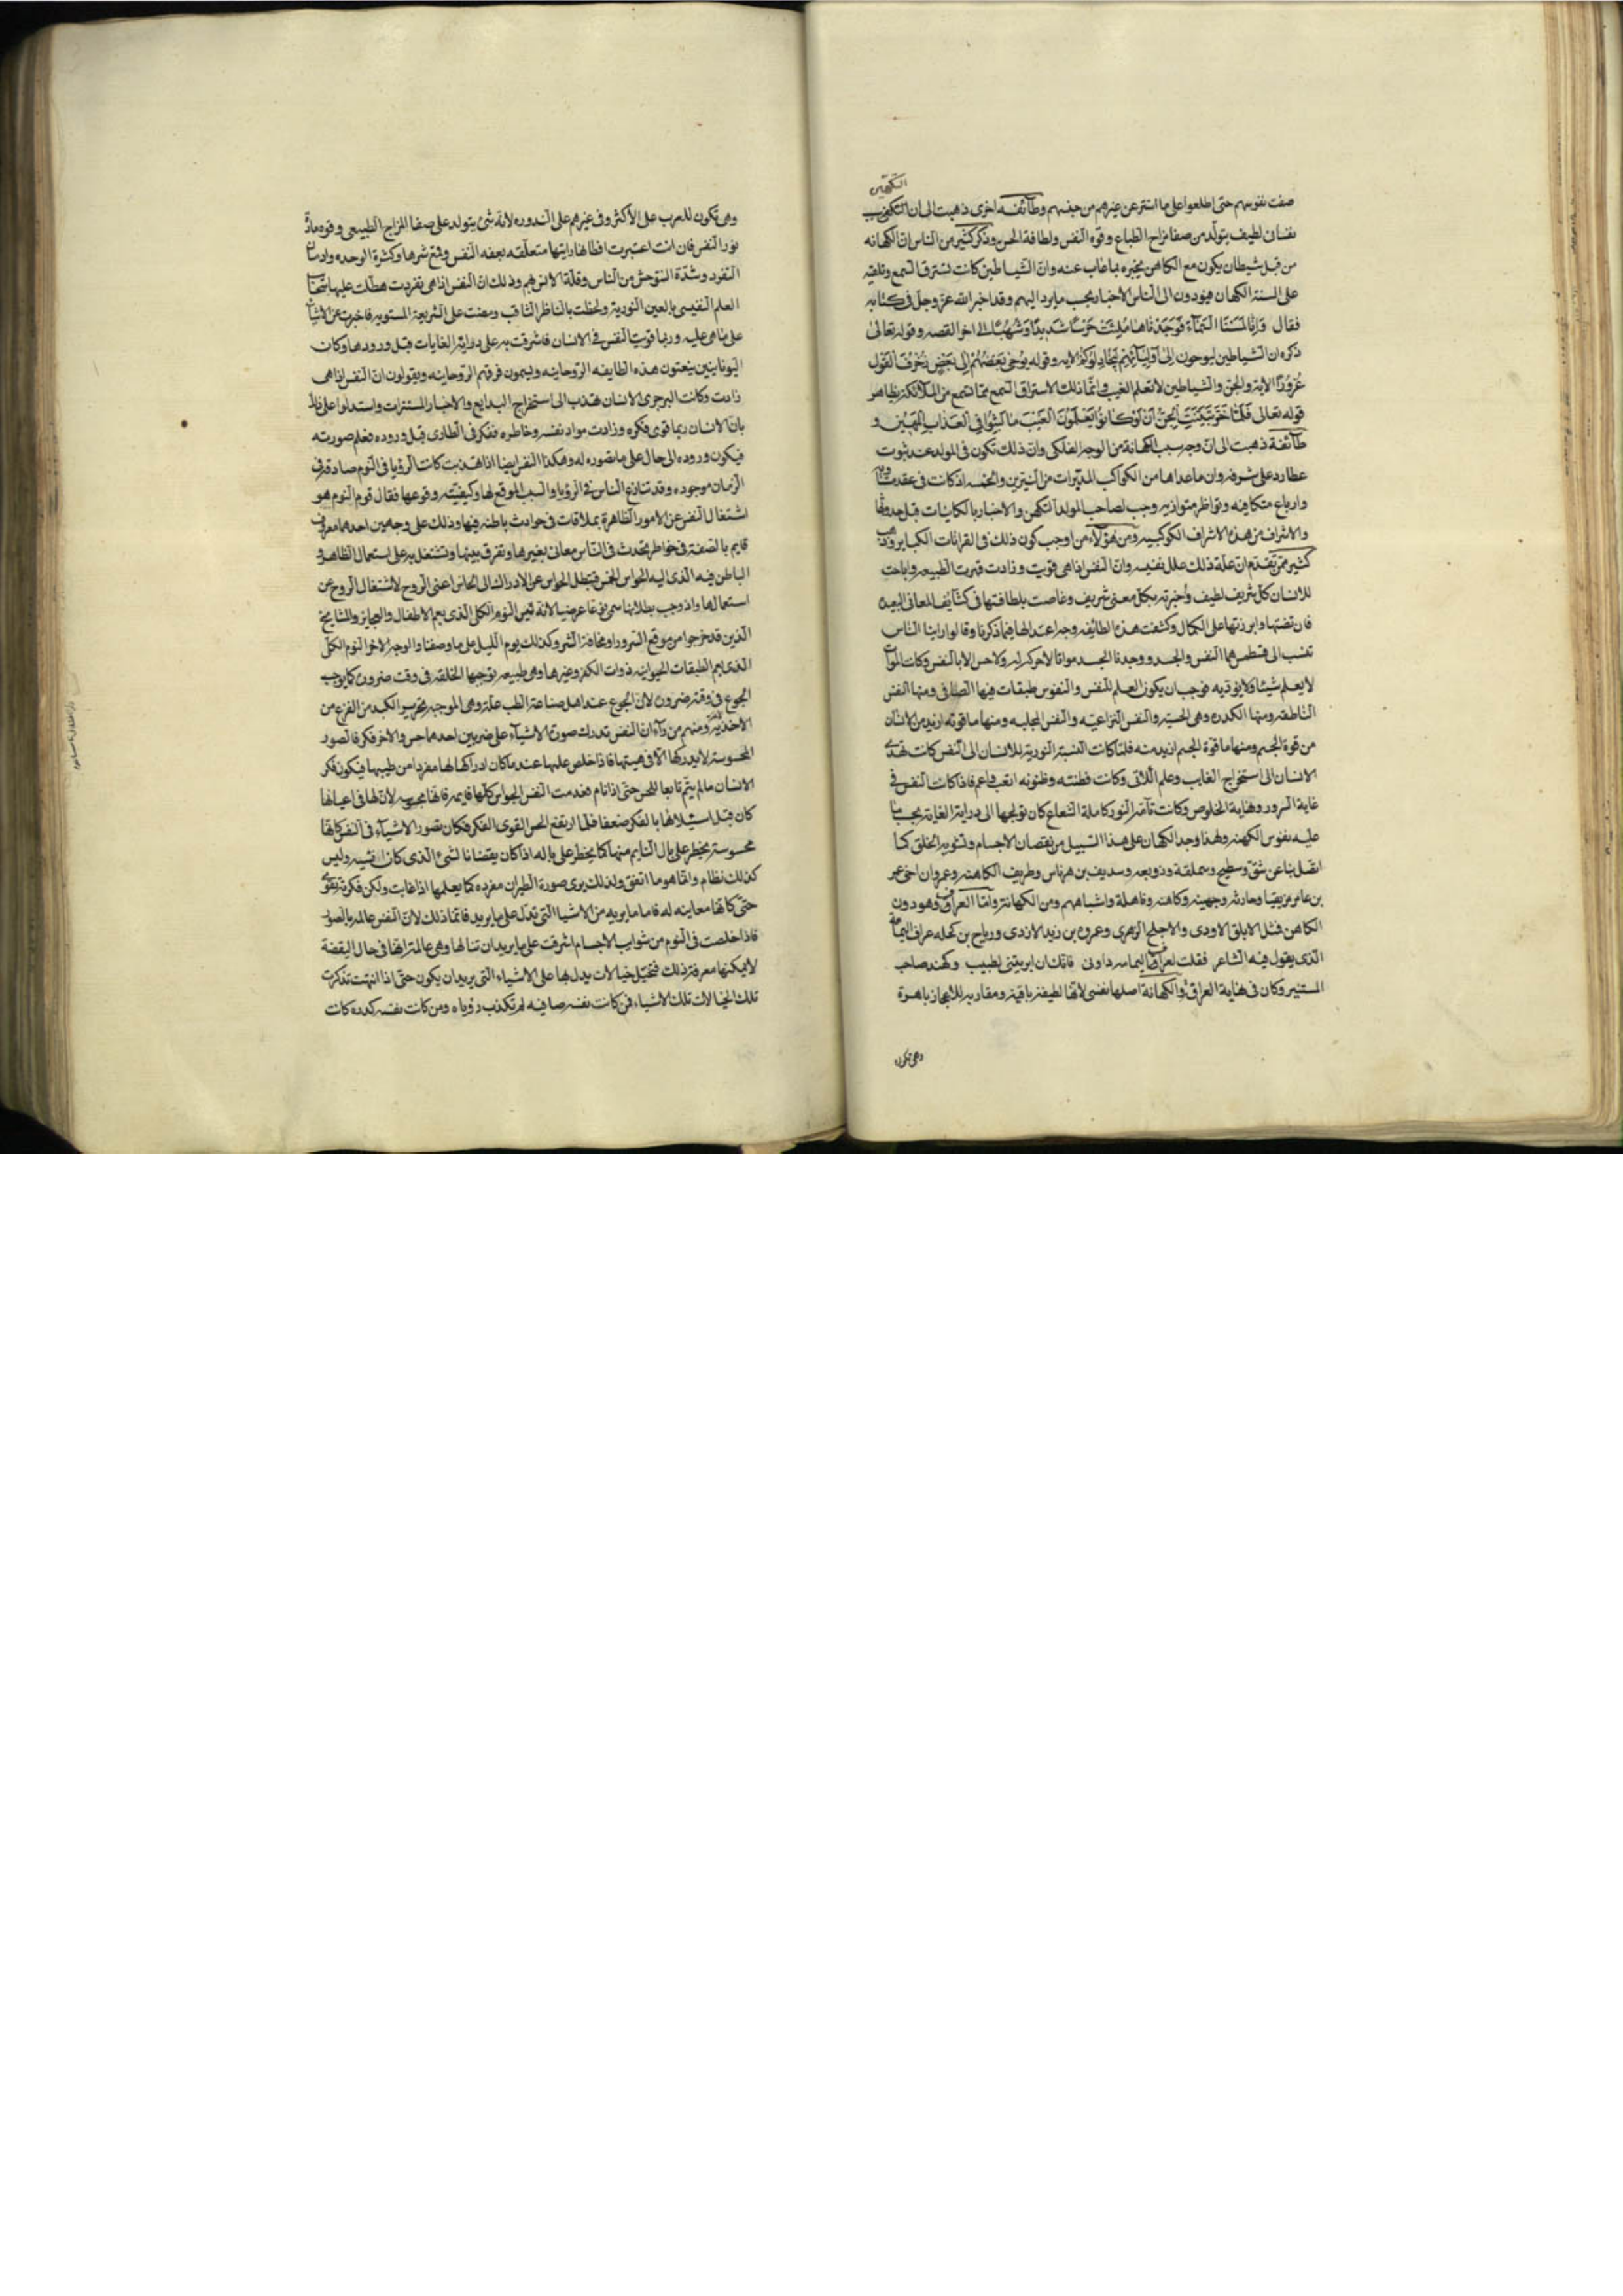 التكهن
صفت نفوسهم حتى اطلعوا على ما استتر عن غيرهم من جنسهم وطائفه اخرى ذهبت الى ان التكهن سبب
نفسانى لطيف يتولد من صفا مزاج الطباع وقوه النفس ولطافة الحس وذكر كثير من الناس ان الكهانه
من قبل شيطان يكون مع الكاهن يخبره بما غاب عنه وان الشياطين كانت تسترق السمع وتلقيه
على السنة الكهان فيؤدون الى الناس الاخبار بحسب ما يرد اليهم وقد اخبر الله عز وجل فى كتابه
فقال وَاِنَّا لَمَسْنَا السَّمَآءَ فَوَجَدْنَاهَا مُلِئَتْ حَرَسًا شَدِيدًا وَشُهُبًا الى اخر القصه وقوله تعالى
ذكره ان الشياطين ليوحون اِلى اَوْلِيَآئِهِم لِيُجَادِلُوكُمْ الايه وقوله يُوحِى بَعْضُهُمْ اِلَى بَعْضٍ زُخْرُفَ الْقَوْل
غُرُورًا الاية والجن والشياطين لا تعلم الغيب وانما ذلك لاستراق السمع مما تسمع من الملائكة بظاهر
قوله تعالى فَلَمَّا خَرَّ تَبَيَّنَتِ الْجِنُّ اَنْ لَوْ كَانُوا يَعْلَمُونَ الْغَيْبَ مَا لَبِثُوا فِى الْعَذَابِ الْمُهِينِ و
طائفة ذهبت الى ان وجه سبب الكهانة من الوجه الفلكى وان ذلك تكون فى المولد عند ثبوت
عطارد على شرفه وان ما عداها من الكواكب المدبرات من النيرين والخمسه اذ كانت فى عقد متساويه
وارباع متكافيه ونواظر متوازيه وجب لصاحب المولد التكهن والاخبار بالكاينات قبل حدوثها
والاشراف من هذه الاشراف الكوكبيه ومن هؤلاء من اوجب كون ذلك فى القرانات الكبار وذهب
كثير ممن تقدم ان علة ذلك علل نفسيه وان النفس اذا هى قويت وزادت قهرت الطبيعه واباحت
للانسان كل شريف لطيف وأخبرته بكل معنى شريف وغاصت بلطافتها فى كثايف المعانى البعيده
فاقتضتها وابرزتها على الكمال وكشفت هذه الطائفه وجه اعتدالها فيما ذكرنا وقالوا راينا الناس
تنسب الى قسطين هما النفس والجسد ووجدنا الجسد مواتا لا حركه له ولا حس الا بالنفس وكانت الموات
لا يعلم شيئا ولا يؤديه فوجب ان يكون العلم للنفس والنفوس طبقات فيها الصافى ومنها النفس
الناطقه ومنها الكدره وهى الحسيه والنفس النزاعيه والنفس المخيله ومنها ما قوته ازيد من الانسان
من قوة الجسم ومنها ما قوة الجسم ازيد منه فلما كانت النسبة النورية للانسان الى النفس كانت تهدى
الانسان الى استخراج الغايب وعلم اللآتى وكانت فطنته وظنونه ابعد واعم فاذا كانت النفس فى
غاية البروز ونهاية الخلوص وكانت تامة النور كاملة الشعاع كان تولجها الى دراية الغايبة بحسب ما
عليه نفوس الكهنه ولهذا وجد الكهان على هذا السبيل من نقصان الاجسام وتشويه الخلق كما
اتصل بنا عن شق وسطيح وسملقة وزوبعه وسديف بن هرماس وطريف الكاهنه وعمران اخى عمر
بن عامر مزيقيا وحارثه وجهينه وكاهنه وفاهلة واشباههم ومن الكهانة واما العراف وهو دون
الكاهن فمثل الابلق الاودى والاجلح الزهرى وعروه بن زيد الازدى ورباح بن كحله عراف اليمامة
الذى يقول فيه الشاعر فقلت لعراف اليمامه داونى فانك ان ابريتنى لطبيب وكهند صاحب
المستنير وكان فى نهاية العراف والكهانة اصلها نفسى لانها لطيفة باقية ومقاربه للاعجاز باهرة
وهى تكون
وهى تكون للعرب على الاكثر وفى غيرهم على الندوره لانه شئ يتولد على صفا المزاج الطبيعى وقوه مادة
نور النفس فان انت اعتبرت اوطانها رايتها متعلقه بعفه النفس وقمع شرها وكثرة الوحده وادمان
التفرد وشدة التوحش من الناس وقلة الانس بهم وذلك ان النفس اذا هى تفردت هطلت عليها سحائب
العلم النفيسى بالعين النوريه ولحظت بالناظر الثاقب ومضت على الشريعة المستويه فاخبرت عن الاشيا
على ما هى عليه وربما قويت النفس فى الانسان فاشرقت به على دراية الغايبات قبل ورودها وكان
اليونانيين ينعتون هذه الطايفه الروحانيه ويسمون فرقهم الروحانيه ويقولون ان النفس اذا هى
زادت وكانت اكبر جزئى الانسان تهذب الى استخراج البدايع والاخبار المستترات واستدلوا على ذلك
بان الانسان ربما قوى فكره وزادت مواد نفسه وخاطره ففكر فى الطارى قبل وروده فعلم صورته
فيكون وروده الى حال على ما تصوره له وهكذا النفس ايضا اذا تهذبت كانت الرؤيا فى النوم صادقه فى
الزمان موجوده وقد تنازع الناس فى الرؤيا والسبب الموقع لها وكيفيته وقوعها فقال قوم النوم هو
اشتغال النفس عن الامور الظاهرة بملاقات فى حوادث باطنه فيها وذلك على وجهين احدهما معروف
قايم بالصفة فى خواطر تحدث فى الناس معانى بغيرها وتفرق بينها وتشتغل به على استعمال الظاهر و
الباطن فيه الذى اليه الحواس الخمس فتبطل الحواس عن الادراك الى الحاس اعنى الروح لاشتغال الروح عن
استعمالها واذ وجب بطلانها سمى نوما عرضيا لانه ليس النوم الكلى الذى يعم الاطفال والعجايز والمشايخ
الذين قد خرجوا من موقع السرور او مخافة الشر وكذلك نوم الليل على ما وصفنا والوجه الاخر النوم الكلى
الذى يعم الطبقات الحيوانيه ذوات الفكر وغيرها وهى طبيعه توجبها الخلقه فى وقت ضرورى كما يوجب
الجوع فى وقته ضرورى لان الجوع عند اهل صناعة الطب علة وهى الموجبه تحريم الكبد من الفرع من
الاحذيه ومنهم من رآى ان النفس تدرك صورة الاشياء على ضربين احدهما حس والاخر فكر فالصور
المحسوسة لا يدركها الا فى هيئتها فاذا خلص عليها عندما كان ادراكها لها مفردا من طبيبها فيكون فكر
الانسان ما لم ينم تابعا للحس حتى اذا نام فعدمت النفس الحواس كلها
كان قبل استيلائها بالفكر ضعفا فلما ارتفع الحس القوى الفكر فكان تصور الاشياء فى النفس كانها
محسوسة يخطر على بال النايم منها كما يخطر على باله اذا كان يقضانا الشئ الذى كان انسيه وليس
كذلك نظام وانما هو ما اتفق ولذلك يرى صورة الطيران مفرده كما يعلمها اذا غابت ولكن فكرته تقوى
حتى كانها معاينه له فاما ما يريه من الاشيا التى تدل على ما يريد فانما ذلك لان النفس عالمه بالصور
فاذا خلصت فى النوم من شوايب الاجسام اشرقت على ما يريد ان ينالها وهى عالمة انها فى حال اليقضة
لا يمكنها معرفة ذلك فتخيل خيالات يدل بها على الاشياء التى يريد ان يكون حتى اذا انتهت تذكرت
تلك الخيالات تلك الاشياء فمن كانت نفسه صافيه لم تكذب رؤياه ومن كانت نفسه كدره كانت